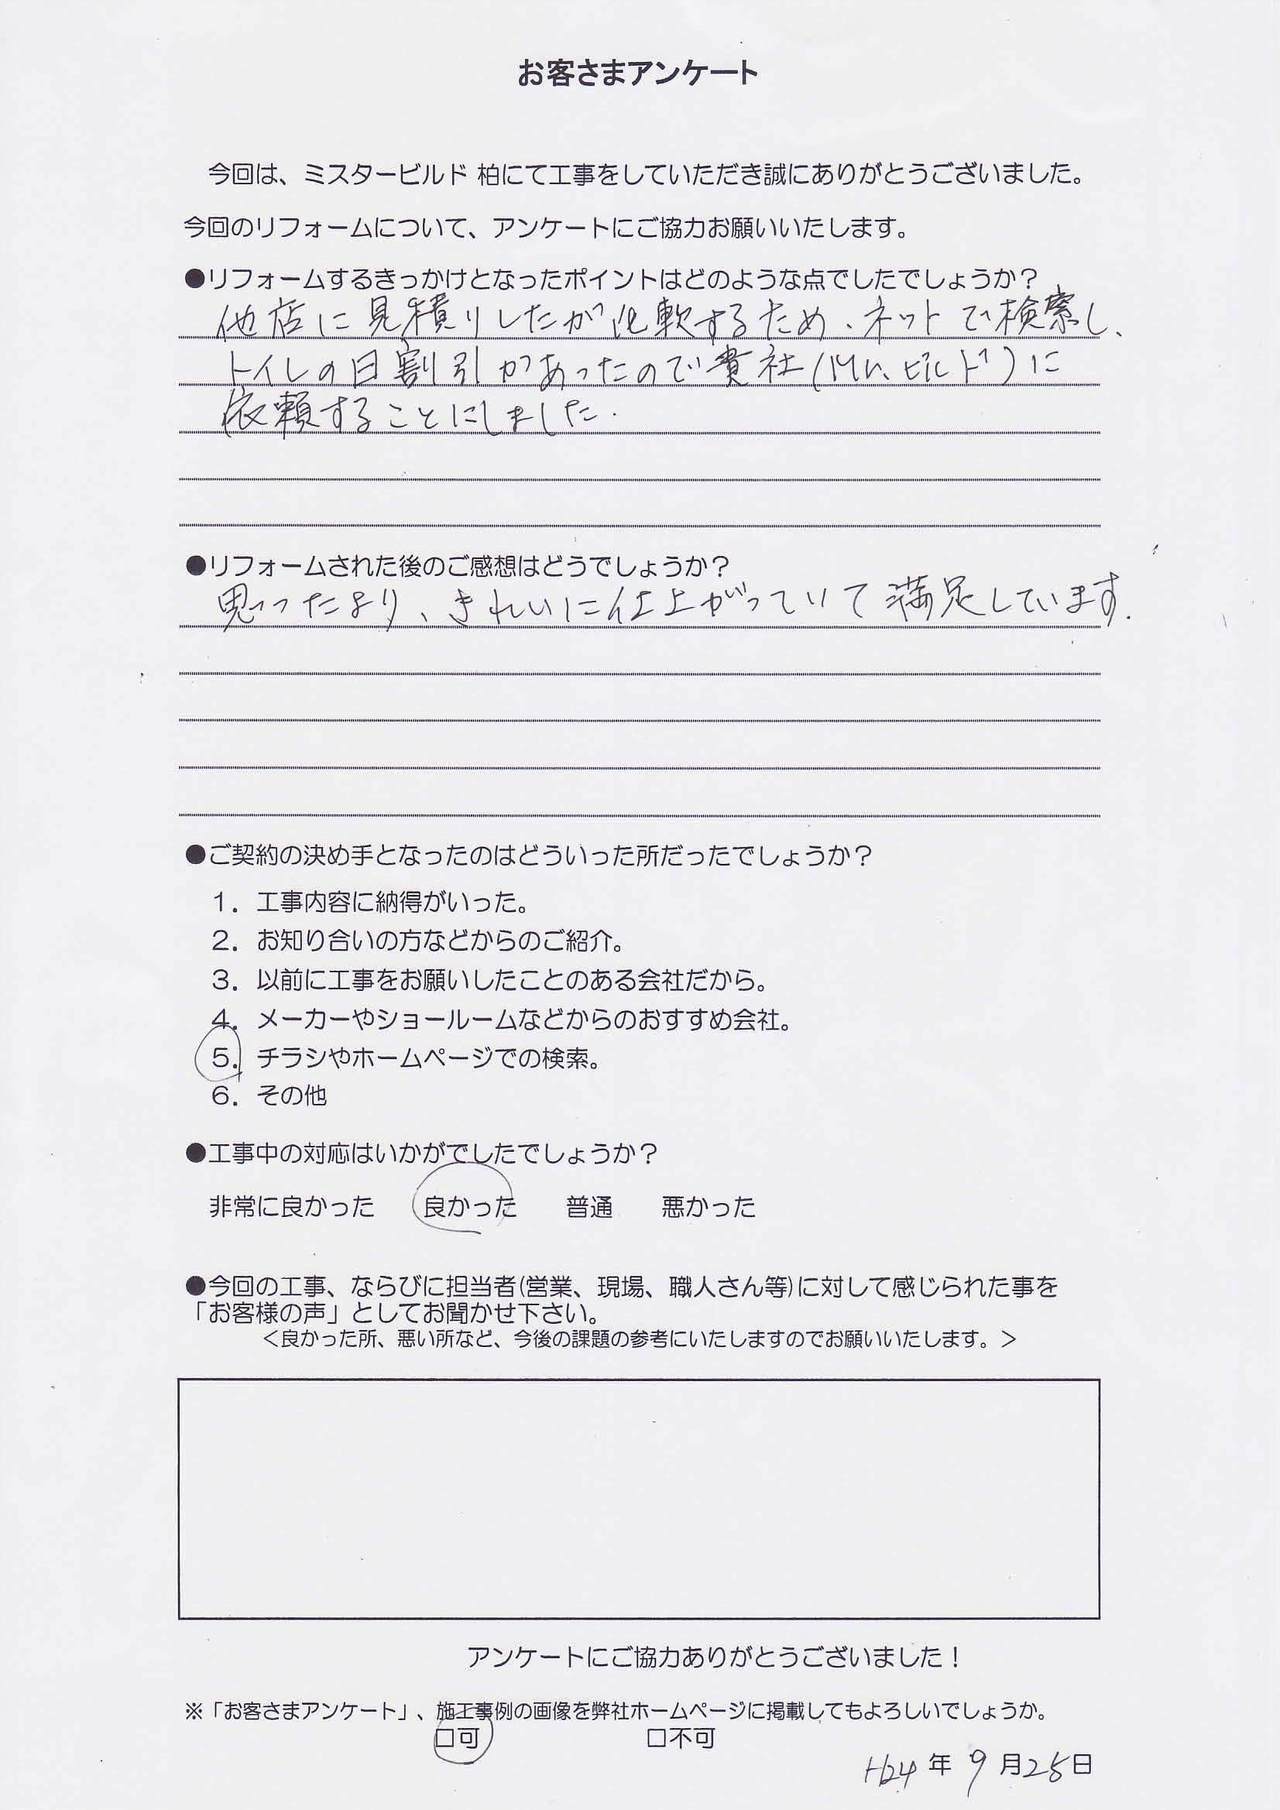 お客さまアンケート
今回は、ミスタービルド 柏にて工事をしていただき誠にありがとうございました。
今回のリフォームについて、アンケートにご協力お願いいたします。
●リフォームするきっかけとなったポイントはどのような点でしたでしょうか？
他店に見積りしたが比較するため、ネットで検索し、
トイレの日割引があったので貴社(Mr.ビルド)に
依頼することにしました.
●リフォームされた後のご感想はどうでしょうか？
思ったより、きれいに仕上がっていて満足しています.
●ご契約の決め手となったのはどういった所だったでしょうか？
1. 工事内容に納得がいった。
2. お知り合いの方などからのご紹介。
3. 以前に工事をお願いしたことのある会社だから。
4. メーカーやショールームなどからのおすすめ会社。
5. チラシやホームページでの検索。
6. その他
●工事中の対応はいかがでしたでしょうか？
非常に良かった 良かった 普通 悪かった
●今回の工事、ならびに担当者(営業、現場、職人さん等)に対して感じられた事を
「お客様の声」としてお聞かせ下さい。
＜良かった所、悪い所など、今後の課題の参考にいたしますのでお願いいたします。＞
アンケートにご協力ありがとうございました！
※「お客さまアンケート」、施工事例の画像を弊社ホームページに掲載してもよろしいでしょうか。
□可 □不可
H24年 9月25日